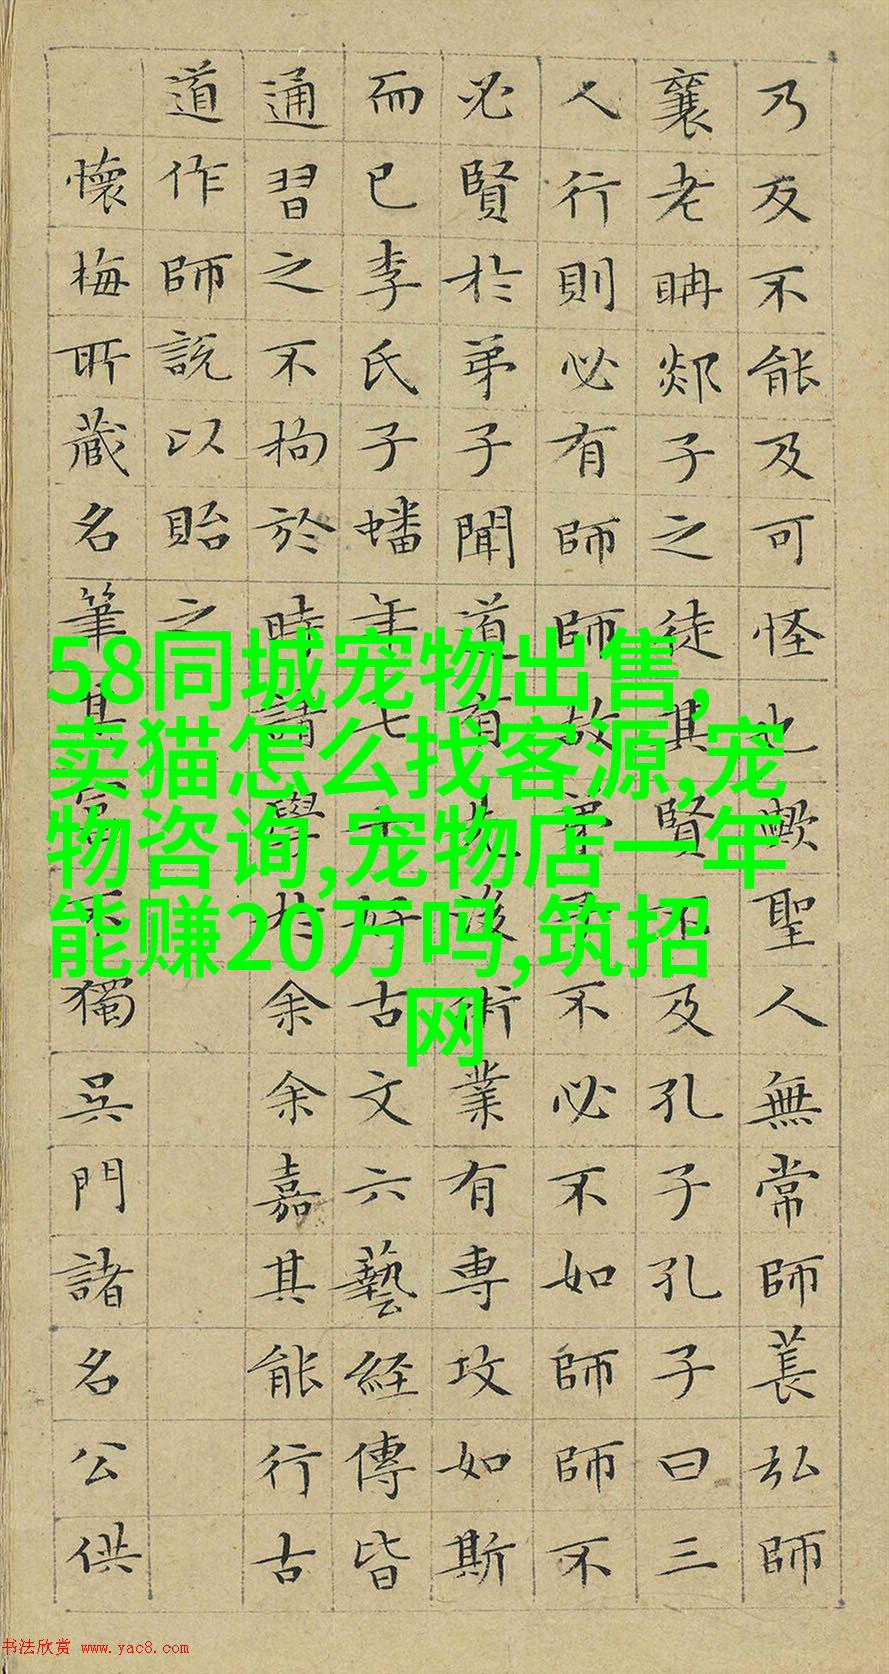 乃反不能及可怪也歟聖人無常師萇弘師
襄老聃郯子之徒其賢不及孔子孔子曰三
人行則必有師師故弟子不必不如師師不
必賢於弟子聞道有先後術業有專攻如斯
而已李氏子蟠年七十好古文六藝経傳皆
通習之不拘於時請學於余余嘉其能行古
道作師説以貽之
懷梅所藏名筆甚富不獨吳門諸名公供
58同城宠物出售,
卖猫怎么找客源,宠
物咨询,宠物店一年
能赚20万吗,筑招
网
书法欣赏 www.yac8.com